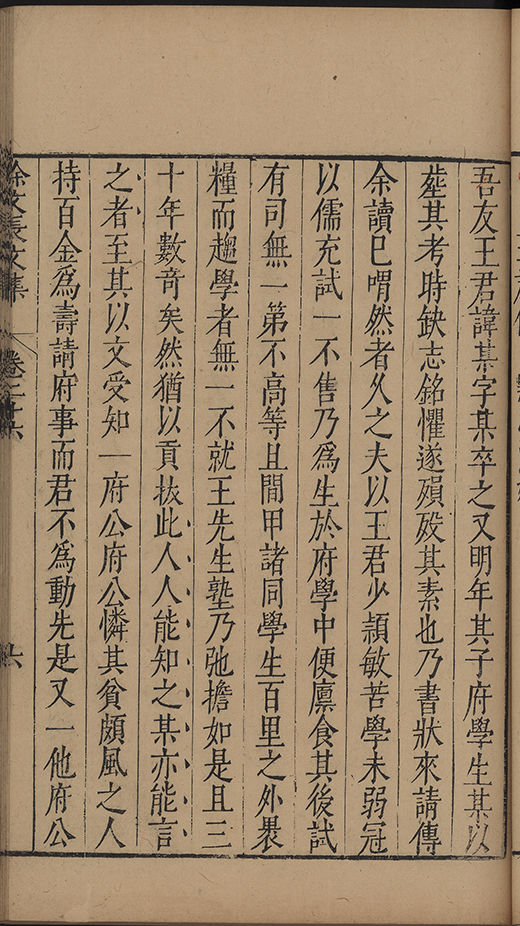 吾友王君諱某字某卒之又明年其子府學生某以
塟其考時缺志銘懼遂殞殁其素也乃書狀來請傳
余讀巳喟然者久之夫以王君少頴敏苦學未弱冠
以儒充試一不售乃爲生於府學中便廪食其後試
有司無一第不高等且間甲諸同學生百里之外褁
糧而趨學者無一不就王先生塾乃弛擔如是且三
十年數竒矣然猶以貢拔此人人能知之某亦能言
之者至其以文受知一府公府公憐其貧頗風之人
持百金爲壽請府事而君不爲動先是又一他府公
徐文長文集
卷二十六
六